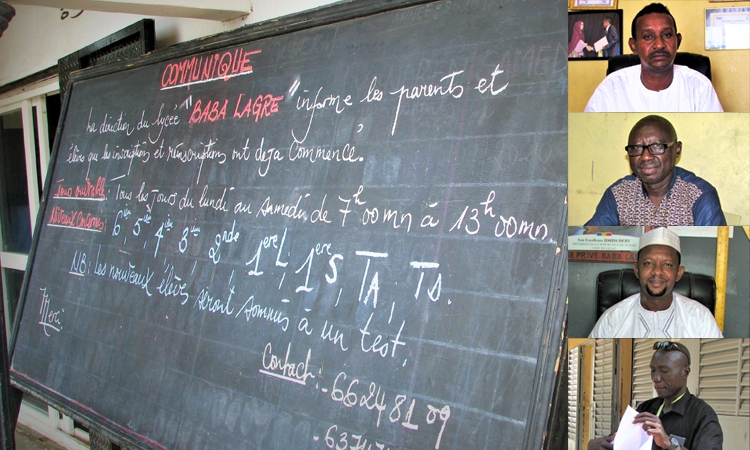 COMMUNIQUE
La direction du lycée "BABA LAGRE" informe les parents et
élèves que les inscription et réinscription ont deja commencé.
Jours ouvrable: Tous les Jours du lundi au samedi de 7h00mn à 13h00mn
Niveaux
6ème, 5ème, 4ème, 3ème, 2nde, 1ere L, 1ere S, TA, TD.
NB: Les nouveaux élèves seront soumis à un test.
Merci
Contact: -662481 09
Son Excellence IDRISS DEBY
PRIVE BABA